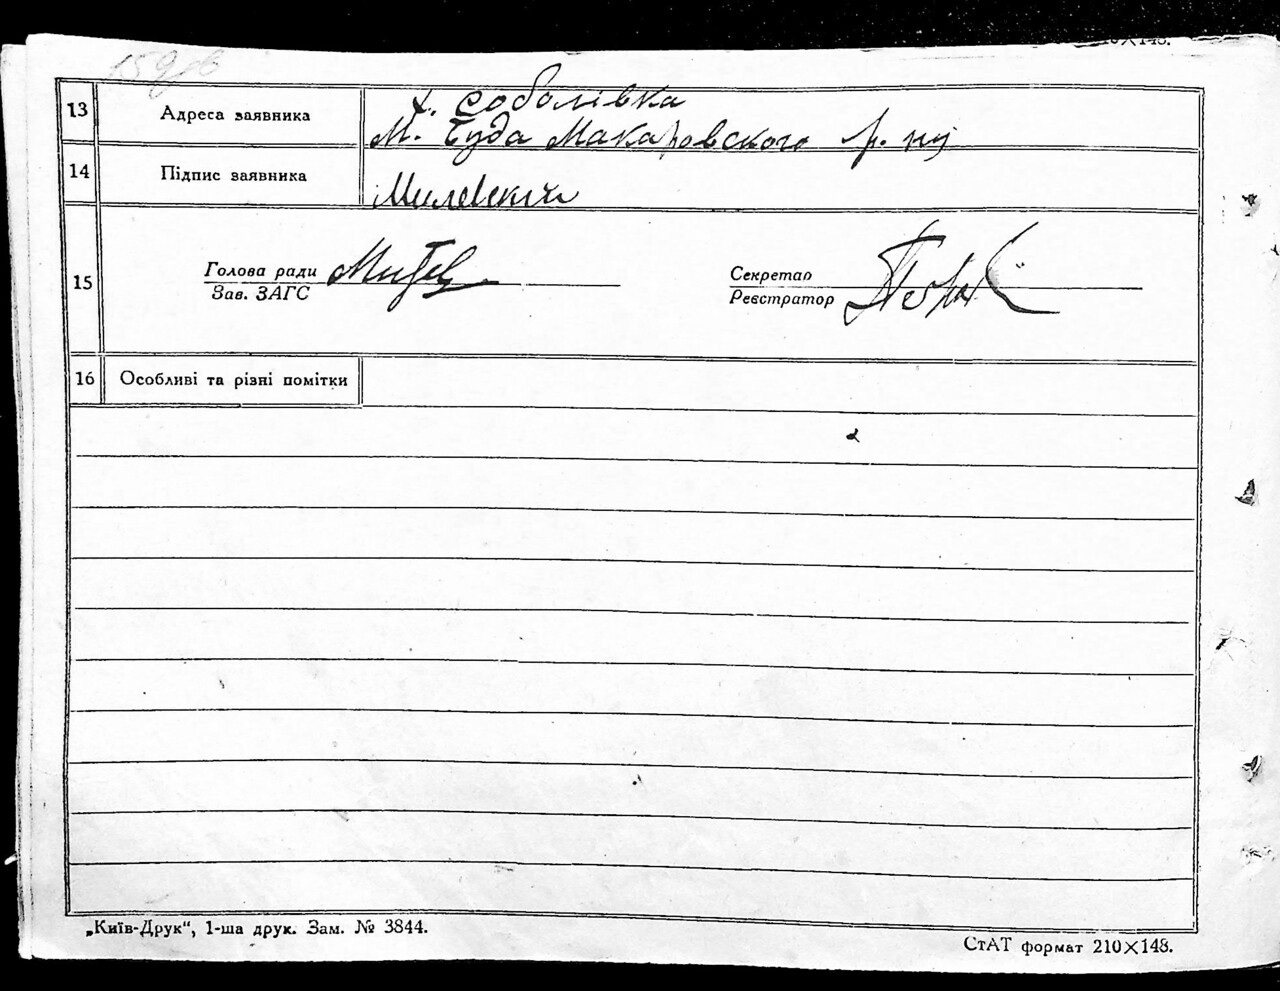 10×148.
13 Адреса заявника х. Соболівка
М. Буда Макаровского р. ну
14 Підпис заявника Милевский
15 Голова ради
Зав. ЗАГС
Секретар
Реєстратор
16 Особливі та різні помітки
„Київ-Друк“, 1-ша друк. Зам. № 3844.
СтАТ формат 210×148.